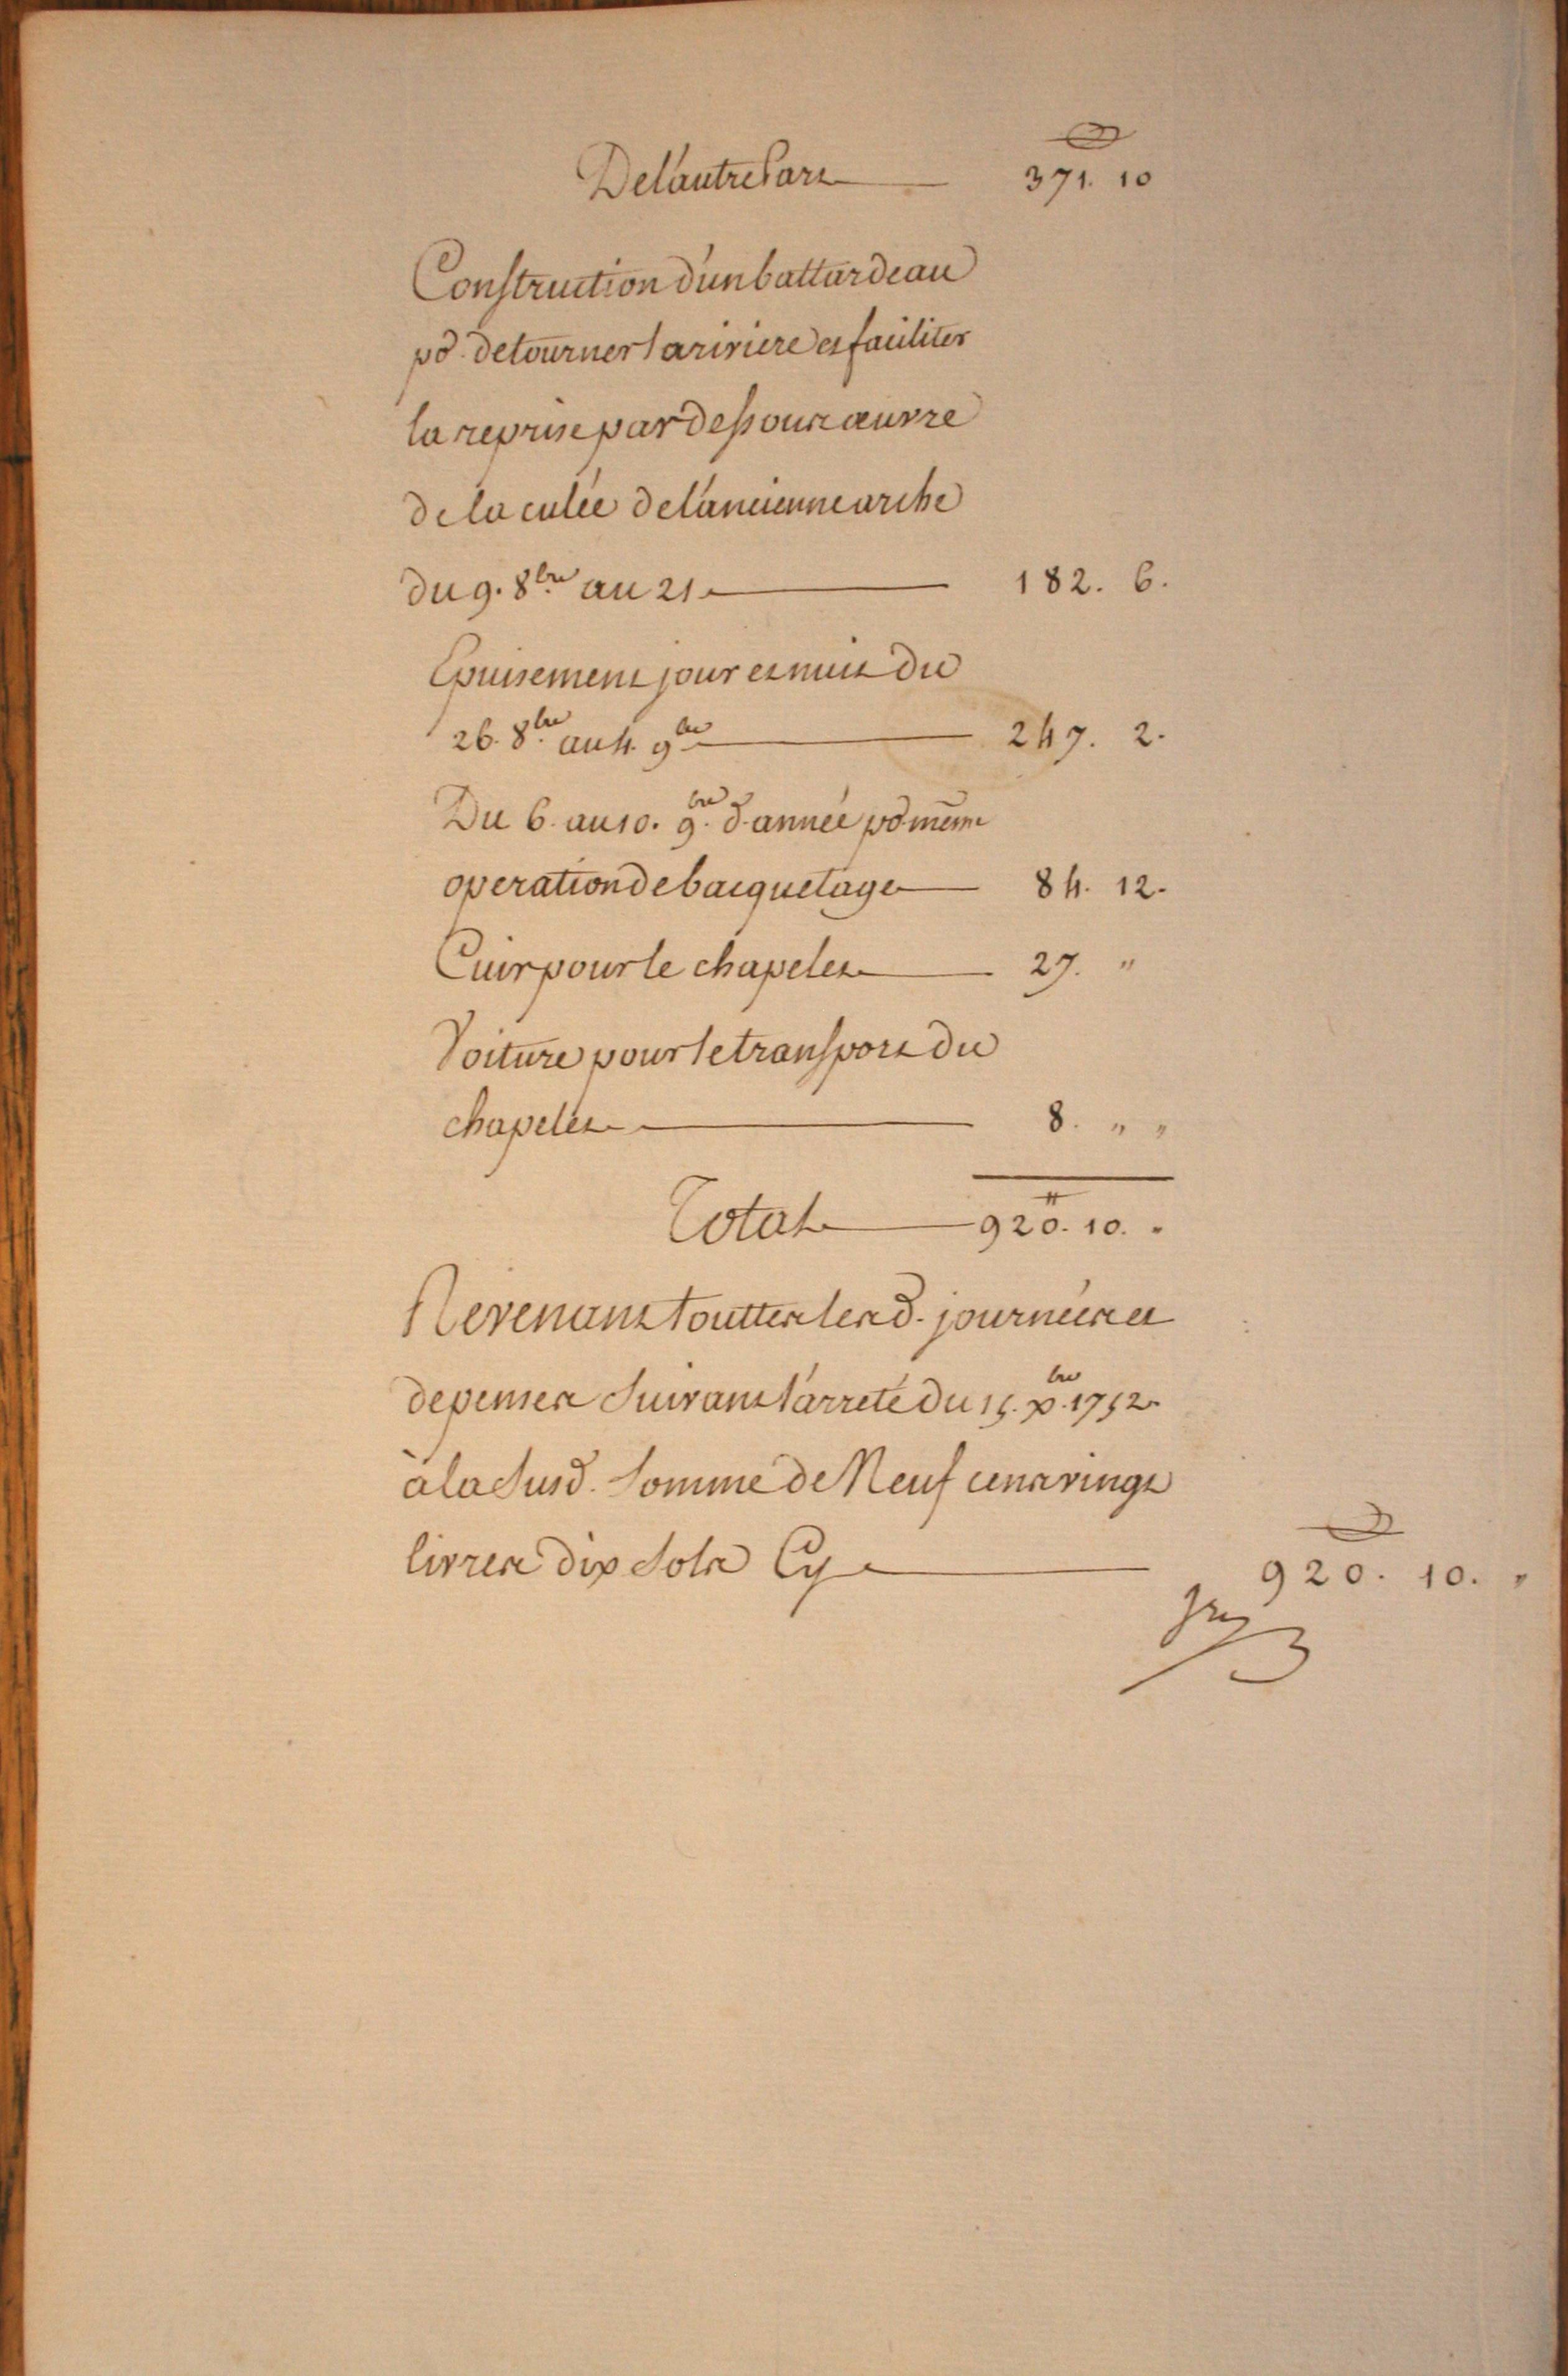 De l'autre Part 371. 10
Construction d'un battardeau
pr. detourner la riviere et faciliter
la reprise par dessous œuvre
de la culée de l'ancienne arche
du 9. 8bre. au 21 182. 6.
Epuisement jour et nuit du
26. 8bre. au 4. 9bre 247. 2.
Du 6. au 10. 9bre. d. année pr. même
operation de bacquetage 84. 12.
Cuir pour le chapelet 27. "
Voiture pour le transport du
chapelet 8. " "
Total 920.# 10. "
Revenant touttes lesd. journées et
depenses suivant l'arreté du 15. xbre. 1752.
à la susd. somme de Neuf cens vingt
livres dix sols Cy 920. 10. "